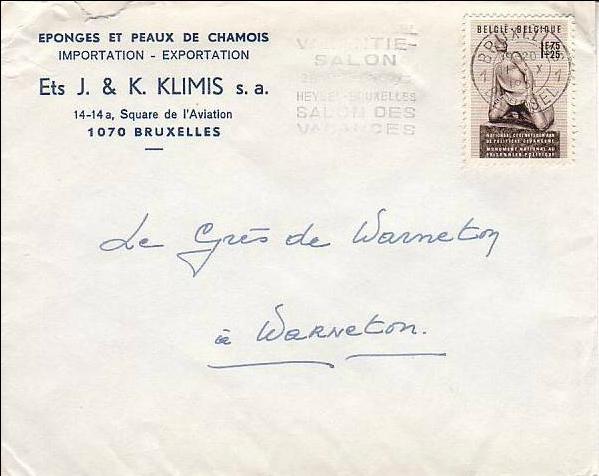 EPONGES ET PEAUX DE CHAMOIS
IMPORTATION - EXPORTATION
Ets J. & K. KLIMIS s. a.
14-14a, Square de l'Aviation
1070 BRUXELLES
VACANTIE-
SALON
HEYSEL-BRUXELLES
SALON DES
VACANCES
BELGIË-BELGIQUE
1F75
+25
NATIONAAL GEDENKTEKEN AAN
DE POLITIEKE GEVANGENE
MONUMENT NATIONAL AU
PRISONNIER POLITIQUE
Le Grès de Warneton
à Warneton.